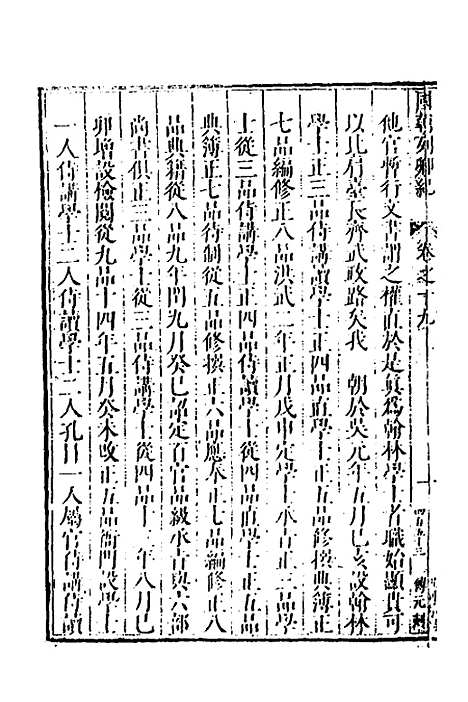 國朝列卿紀 卷之十九
他官暫行文書謂之權直於是真為翰林學士者職始顯貴可
以比肩臺長齊武政路矣我 朝於吳元年五月己亥設翰林
學士正三品侍講讀學士正四品直學士正五品修撰典簿正
七品編修正八品洪武二年正月戊申定學士承旨正三品學
士從三品侍講學士正四品侍讀學士從四品直學士正五品
典簿正七品待制從五品修撰正六品應奉正七品編修正八
品典籍從八品九年閏九月癸巳詔定百官品級承旨與六部
尚書俱正三品學士從三品侍講學士從四品十 年八月己
卯增設檢閱從九品十四年五月癸未改正五品衙門設學士
一人侍講學士二人侍讀學士二人孔目一人屬官侍講侍讀